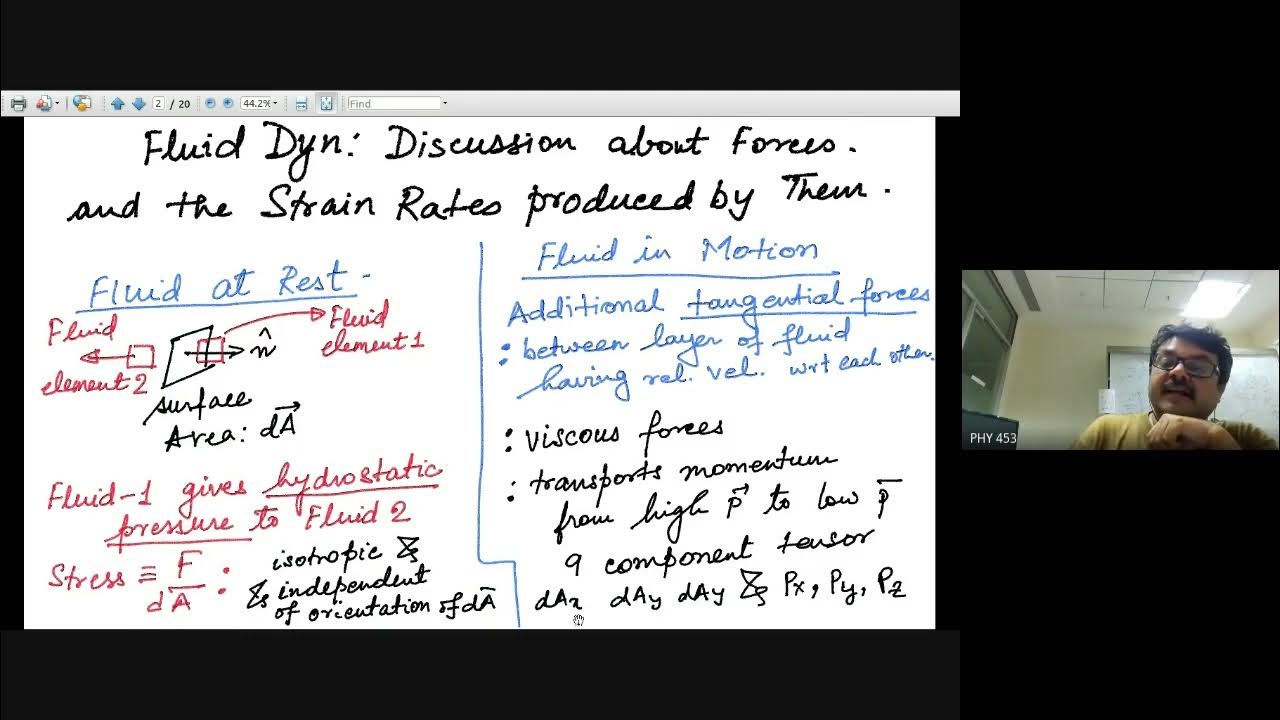 2 / 20
44.2%
Find
Fluid Dyn: Discussion about Forces.
and the Strain Rates produced by Them.
Fluid at Rest -
Fluid
element 2
n̂
Fluid
element 1
surface
Area: dA⃗
Fluid-1 gives hydrostatic
pressure to Fluid 2
Stress ≡ F/dA⃗ :
isotropic &
& independent
of orientation of dA⃗
Fluid in Motion
Additional tangential forces
: between layer of fluid
having rel. vel. wrt each other.
: viscous forces
: transports momentum
from high p⃗ to low p⃗
9 component tensor
dAx dAy dAy & Px, Py, Pz
PHY 453